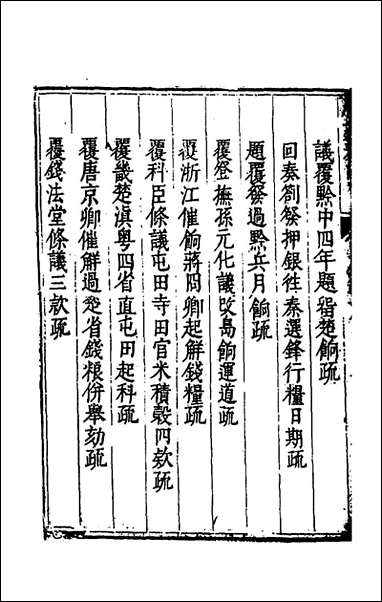 議覆黔中四年題畱楚餉疏
回奏劄發押銀往秦選鋒行糧日期疏
題覆發過黔兵月餉疏
覆登撫孫元化議改島餉運道疏
覆浙江催餉蔣冏卿起解錢糧疏
覆科臣條議屯田寺田官米積穀四欵疏
覆畿楚滇粤四省直屯田起科疏
覆唐京卿催解過楚省錢粮併舉劾疏
覆錢法堂條議三欵疏